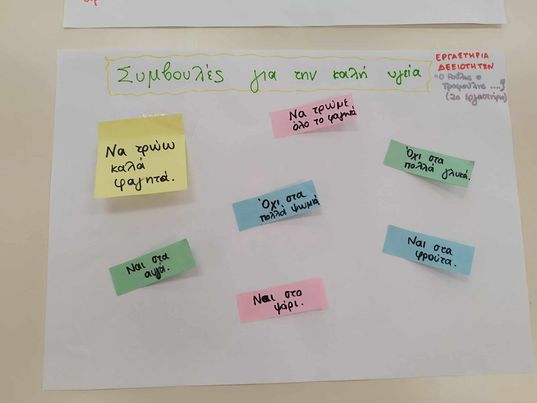 Συμβουλές για την καλή υγεία
ΕΡΓΑΣΤΗΡΙΑ
ΔΕΞΙΟΤΗΤΩΝ
"Ο Ο
(2ο εργαστήριο)
Να τρώμε
όλο το φαγητό
Να τρώω
καλά
φαγητά.
Όχι στα
πολλά γλυκά.
Όχι στα
πολλά ψωμιά
Ναι στα
φρούτα.
Ναι στα
αυγά.
Ναι στο
ψάρι.